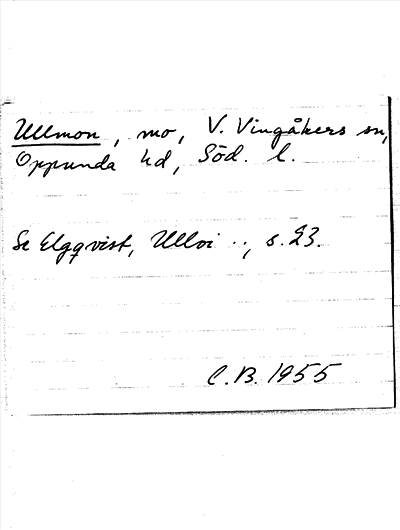 Ullmon, mo, V. Vingåkers sn,
Oppunda hd, Söd. l.
Se Elgqvist, Ullvi .., s. 23.
C.B. 1955